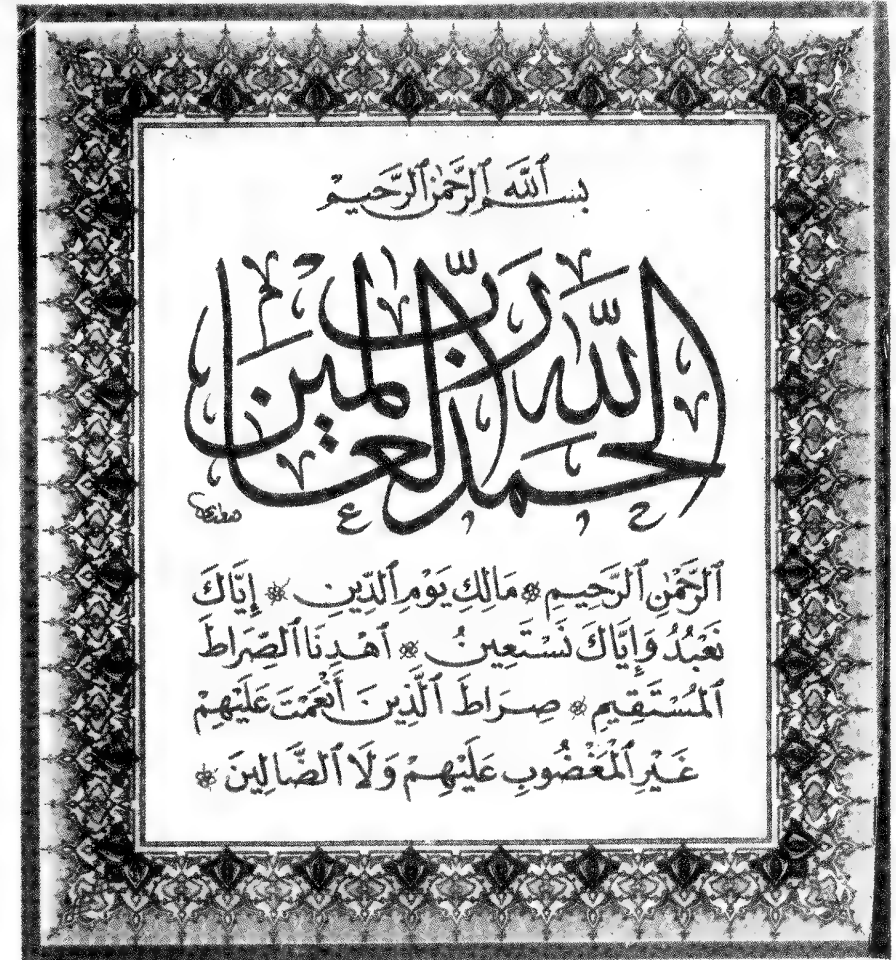 بسم ٱللَّه ٱلرَّحمٰن ٱلرَّحيم
الحمد لله رب العالمين
ٱلرَّحْمٰنِ ٱلرَّحِيمِ مَالِكِ يَوْمِ ٱلدِّينِ إِيَّاكَ
نَعْبُدُ وَإِيَّاكَ نَسْتَعِينُ ٱهْدِنَا ٱلصِّرَاطَ
ٱلْمُسْتَقِيمِ صِرَاطَ ٱلَّذِينَ أَنْعَمْتَ عَلَيْهِمْ
غَيْرِ ٱلْمَغْضُوبِ عَلَيْهِمْ وَلَا ٱلضَّالِينَ